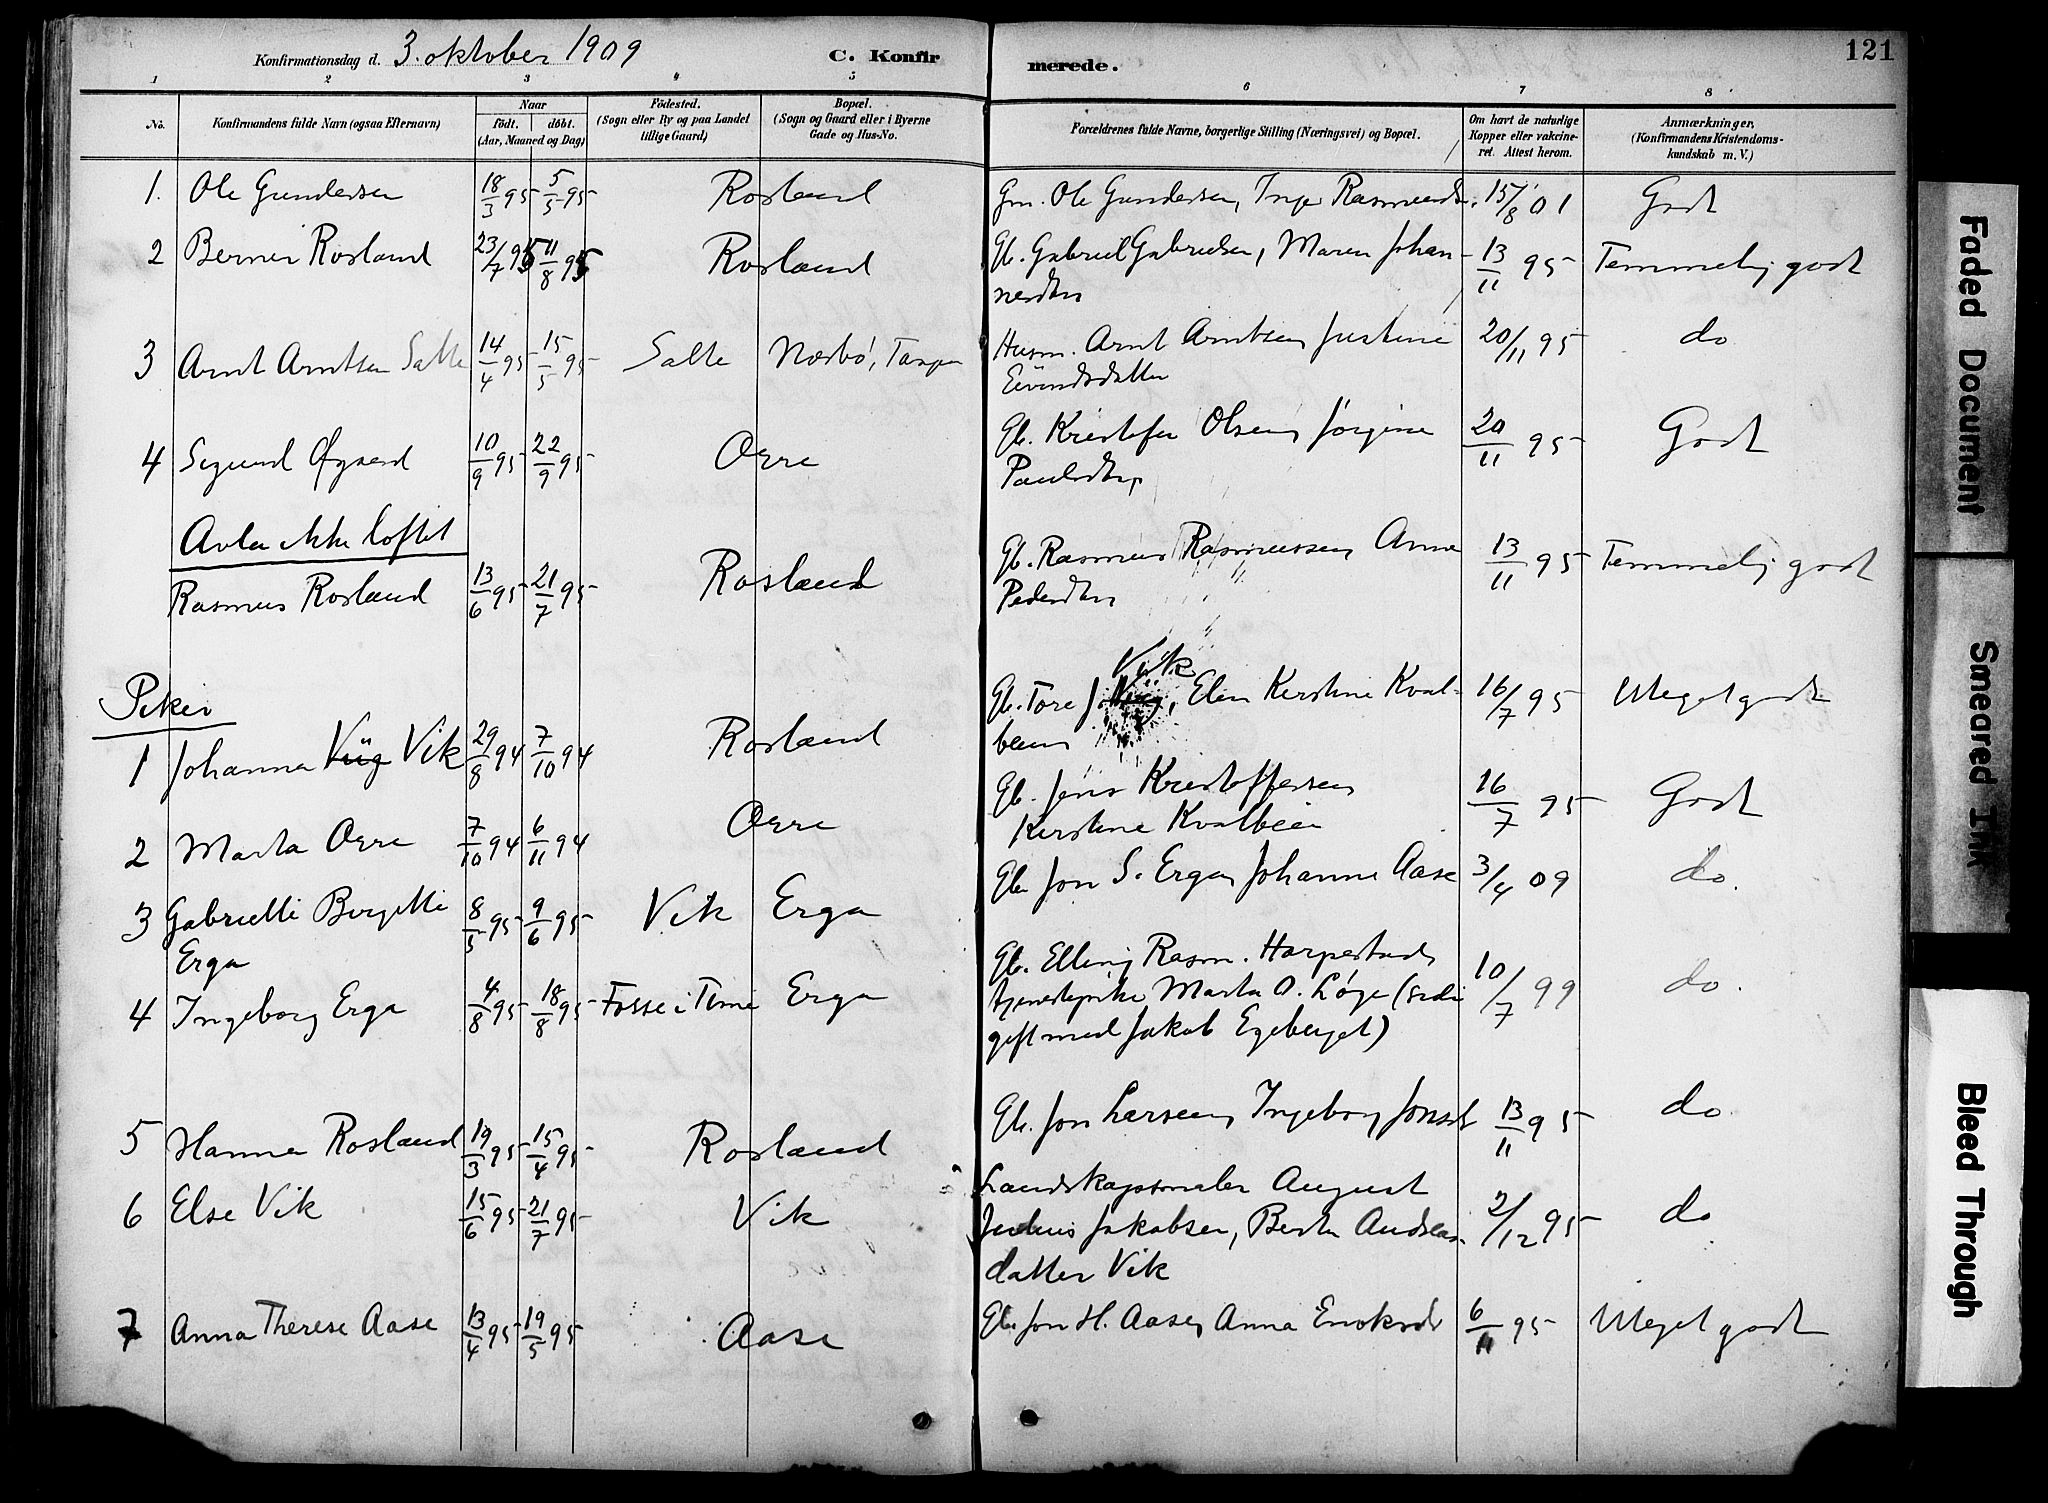 Konfirmationsdag d. 3. oktober 1909 C. Konfirmerede. 121
1 2 3 4 5 6 7 8
No. Konfirmandens fulde Navn (ogsaa Efternavn) Naar født. døbt. (Aar, Maaned og Dag) Fødested. (Sogn eller By og paa Landet tillige Gaard) Bopæl. (Sogn og Gaard eller i Byerne Gade og Hus-No. Forældrenes fulde Navne, borgerlige Stilling (Næringsvei) og Bopæl. Om havt de naturlige Kopper eller vakcineret. Attest herom. Anmærkninger, (Konfirmandens Kristendomskundskab m. V.)
1. Ole Gundersen 18/3 95 5/5 95 Rosland Gm. Ole Gundersen, Inger Rasmusdt. 15/8 01 Godt
2 Berner Rosland 23/7 95 11/8 95 Rosland Gb. Gabriel Gabrielsen, Maren Johan-
nesdtr 13/11 95 Temmelig godt
3 Arnt Arntsen Salte 14/4 95 15/5 95 Salte Nærbø, Tangen Husm. Arnt Arntsen, Justine
Eivindsdatter 20/11 95 do
4 Sigurd Øysend 10/9 95 22/9 95 Orre Gb. Kristofer Olsen, Jørgine
Paulsdtr, 20/11 95 Godt
Avla ikke loftet
Rasmus Rosland 13/6 95 21/7 95 Rosland Gb. Rasmus Rasmussen, Anna
Pedersdtr 13/11 95 Temmelig godt
Piker
1 Johanna Viig Vik 29/8 94 7/10 94 Rosland Gb. Tore J. Vik, Elen Kirstine Kval-
bein 16/7 95 Meget godt
2 Marta Orre 7/10 94 6/11 94 Orre Gb. Jens Kristoffersen
Kirstine Kvalbein 16/7 95 Godt
3 Gabrielle Birgitte
Erga 8/5 95 9/6 95 Vik Erga Gb. Jon S. Erga, Johanne Aase 3/4 09 do.
4 Ingeborg Erga 4/8 95 18/8 95 Fosse i Time Erga Gb. Elling Rasm. Harpestad,
tjenestepike Marta O. Løge (siden
gift med Jakob Egeberget) 10/7 99 do.
5 Hanna Rosland 19/3 95 15/4 95 Rosland Gb. Jon Larsen, Ingeborg Jonsdt 13/11 95 do
6 Else Vik 15/6 95 21/7 95 Vik Landskapsmaler August
Julius Jakobsen, Berta Andreas-
datter Vik 2/12 95 do
7 Anna Therese Aase 13/4 95 19/5 95 Aase Gb. Jon H. Aase, Anna Enoksdt 6/11 95 Meget godt
Faded Document
Smeared Ink
Bleed Through